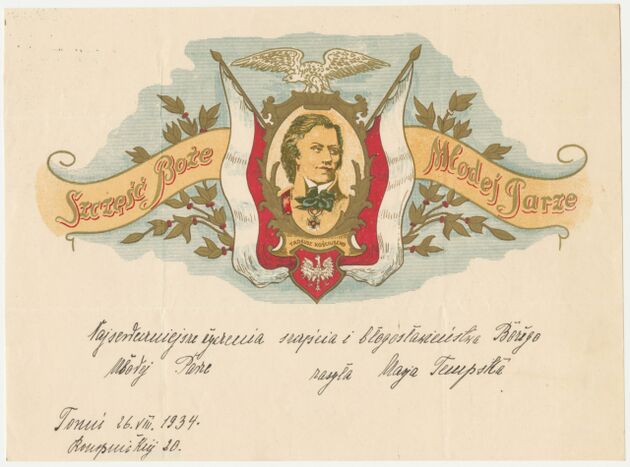 Szczęść Boże
Młodej Parze
TADEUSZ KOŚCIUSZKO
Najserdeczniejsze życzenia szczęścia i błogosławieństwa Bożego
Młodej Parze zasyła Maya Tempska
Toruń 26. VIII. 1934.
20.